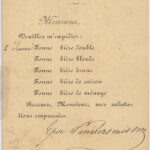 Monsieur,
Veuillez m'expédier:
Tonne bière double
Tonne bière blonde
Tonne bière brune
Tonne bière de saison
Tonne bière de ménage
Recevez, Monsieur, mes saluta-
tions empressées.